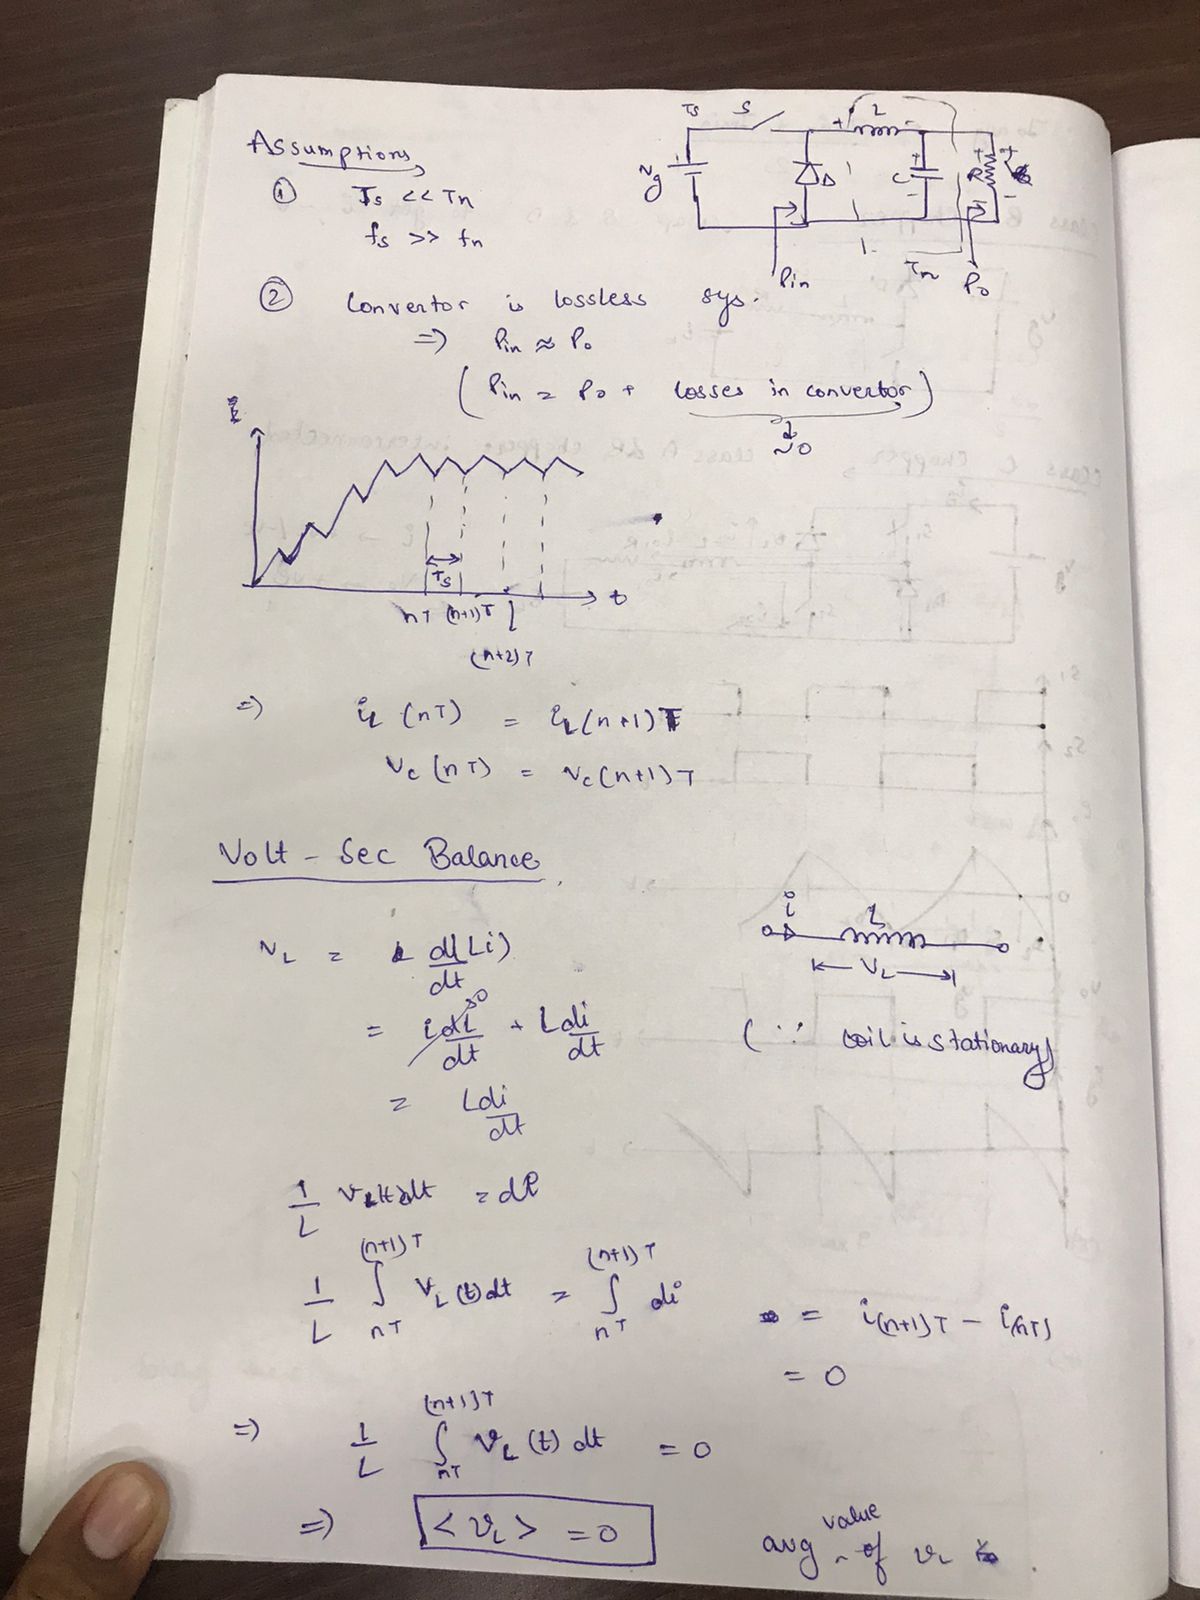 Assumptions
① Ts << Tn
fs >> fn
Ts S L
+ -
Vg D C + - R + -
Pin Tn Po
② Convertor is lossless sys.
=> Pin ≈ Po
(Pin = Po + losses in convertor)
≈0
i
Ts
t
nT (n+1)T
(n+2)T
=> iL (nT) = iL(n+1)T
Vc (nT) = Vc(n+1)T
Volt - Sec Balance
i L
VL
VL = d(Li)/dt
= i dL/dt →0 + L di/dt (∵ coil is stationary)
= L di/dt
1/L VL(t)dt = di
1/L ∫ nT (n+1)T VL(t)dt = ∫ nT (n+1)T di = i(n+1)T - i(nT)
= 0
=> 1/L ∫ nT (n+1)T VL(t) dt = 0
=> <VL> = 0 avg value of VL